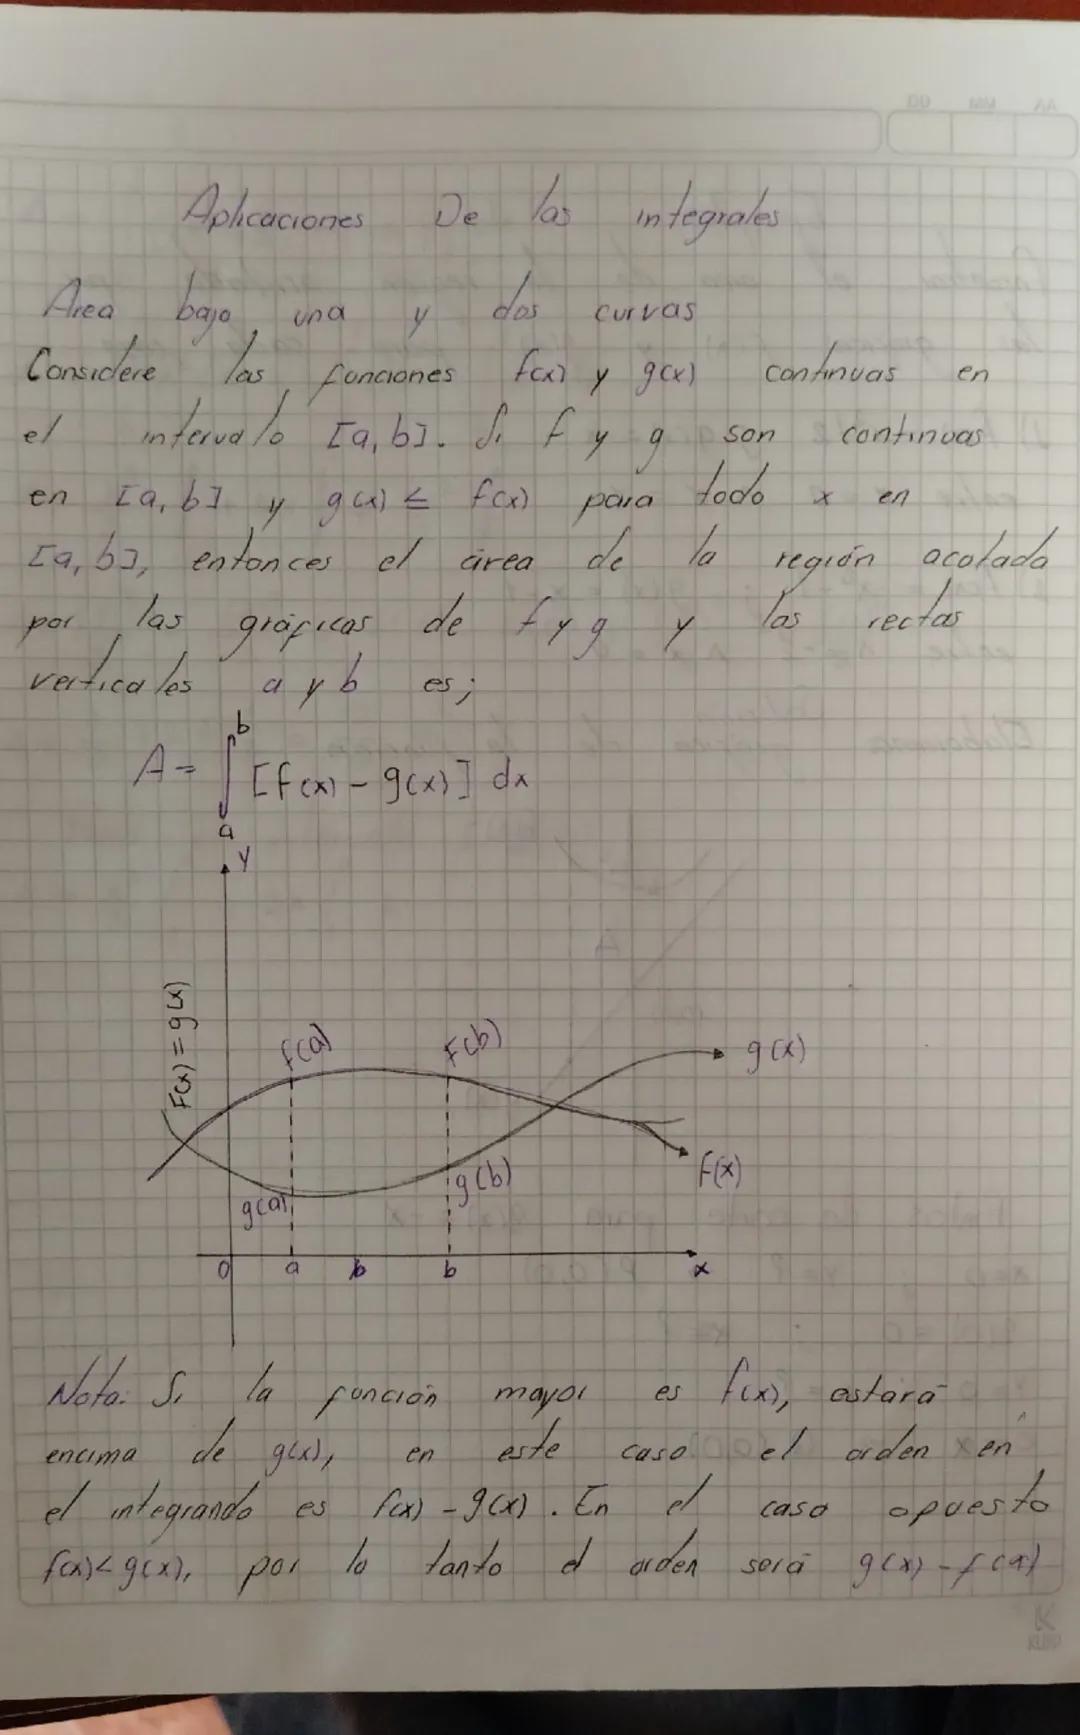 DD MM AA
Aplicaciones De las integrales
Area bajo una y dos curvas
Considere las funciones f(x) y g(x) continuas en
el intervalo [a, b]. Si f y g son continuas
en [a, b] y g(x) ≤ f(x) para todo x en
[a, b], entonces el área de la región acotada
por las gráficas de f y g y las rectas
verticales a y b es;
A = ∫ₐᵇ [f(x) - g(x)] dx
y
F(x) = g(x)
f(a) F(b) g(x)
g(a) g(b) F(x)
0 a b b x
Nota: Si la función mayor es f(x), estará
encima de g(x), en este caso el orden en
el integrando es f(x) - g(x). En el caso opuesto
f(x) < g(x), por lo tanto el orden será g(x) - f(x)